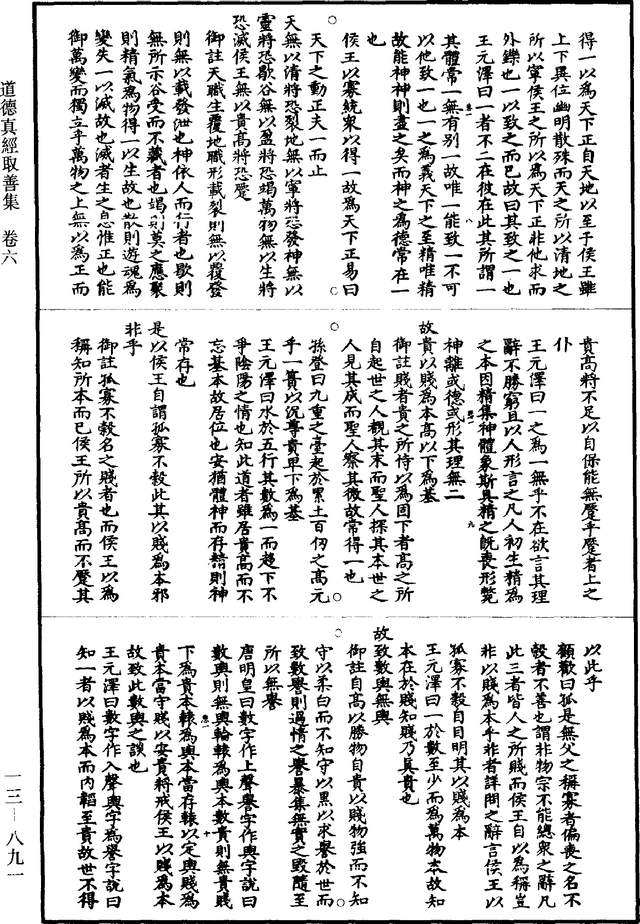 得一以為天下正自天地以至于侯王雖
上下異位幽明散殊而天之所以清地之
所以寧侯王之所以為天下正非他求而
外鑠也一以致之而已故曰其致之一也
王元澤曰一者不二在彼在此其所謂一
其體常一無有別一故唯一能致一不可
以他致一也一之為義天下之至精唯精
故能神神則盡之矣而神之為德常在一
也
侯王以寡統衆以得一故為天下正易曰
天下之動正夫一而止
天無以清將恐裂地無以寧將恐發神無以
靈將恐歇谷無以盈將恐竭萬物無以生將
恐滅侯王無以貴高將恐蹷
御註天職生覆地職形載裂則無以覆發
則無以載發泄也神依人而行者也歇則
無所示谷受而不藏者也竭則莫之應聚
則精氣為物得一以生故也散則遊魂為
變失一以滅故也滅者生之息惟正也能
御萬變而獨立乎萬物之上無以為正而
貴高將不足以自保能無蹷乎蹷者上之
仆
王元澤曰一之為一無乎不在欲言其理
辭不勝窮且以人形言之凡人初生精為
之本因精集神體象斯具精之既喪形斃
神離或德或形其理無二
故貴以賤為本高以下為基
御註賤者貴之所恃以為固下者高之所
自起世之人觀其末而聖人探其本世之
人見其成而聖人察其微故常得一也
孫登曰九重之臺起於累土百仞之高元
乎一簣以沉尊貴卑下為基
王元澤曰水於五行其數為一而趨下不
爭陰陽之情也知此道者雖居貴高而不
忘基本故居位也安猶體神而存精則神
常存也
是以侯王自謂孤寡不穀此其以賤為本邪
非乎
御註孤寡不穀名之賤者也而侯王以為
稱知所本而已侯王所以貴高而不蹷其
以此乎
顧歡曰孤是無父之稱寡者偏喪之名不
穀者不善也謂非物宗不能總衆之辭凡
此三者皆人之所賤而侯王自以為稱豈
非以賤為本乎非者詳問之辭言侯王以
孤寡不穀自目明其以賤為本
王元澤曰一於數至少而為萬物本故知
本在於賤知賤乃真貴也
故致數輿無輿
御註自高以勝物自貴以賤物強而不知
守以柔白而不知守以黑以求譽於世而
致數譽則過情之譽暴集無實之毀隨至
所以無譽
唐明皇曰數字作上聲譽字作輿字說曰
數輿則無輿輪轅為輿本數貴則無貴賤
下為貴本轅為輿本當存轅以定輿賤為
貴本當守賤以安貴將戒侯王以賤為本
故致此數輿之談也
王元澤曰數字作入聲輿字為譽字說曰
知一者以賤為本而內韜至貴故世不得
道德真經取善集　卷六
一三－八九一